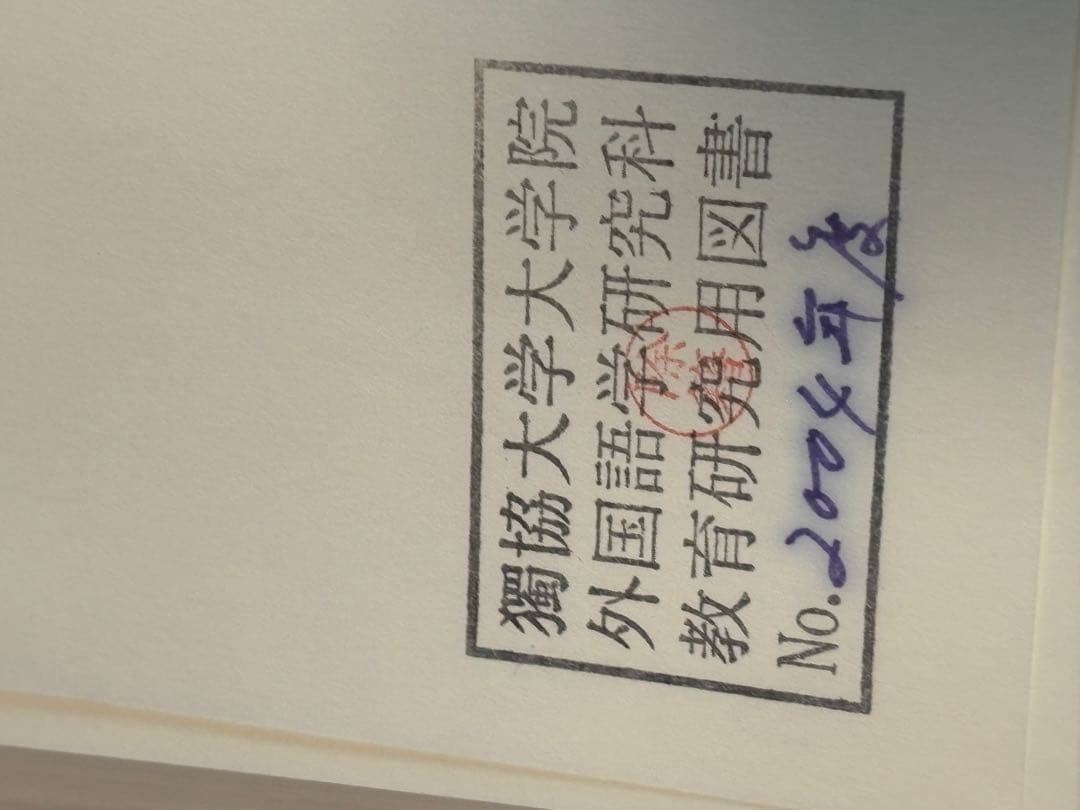 獨協大学大学院
外国語学研究科
教育研究用図書
No. 2004年度
除籍